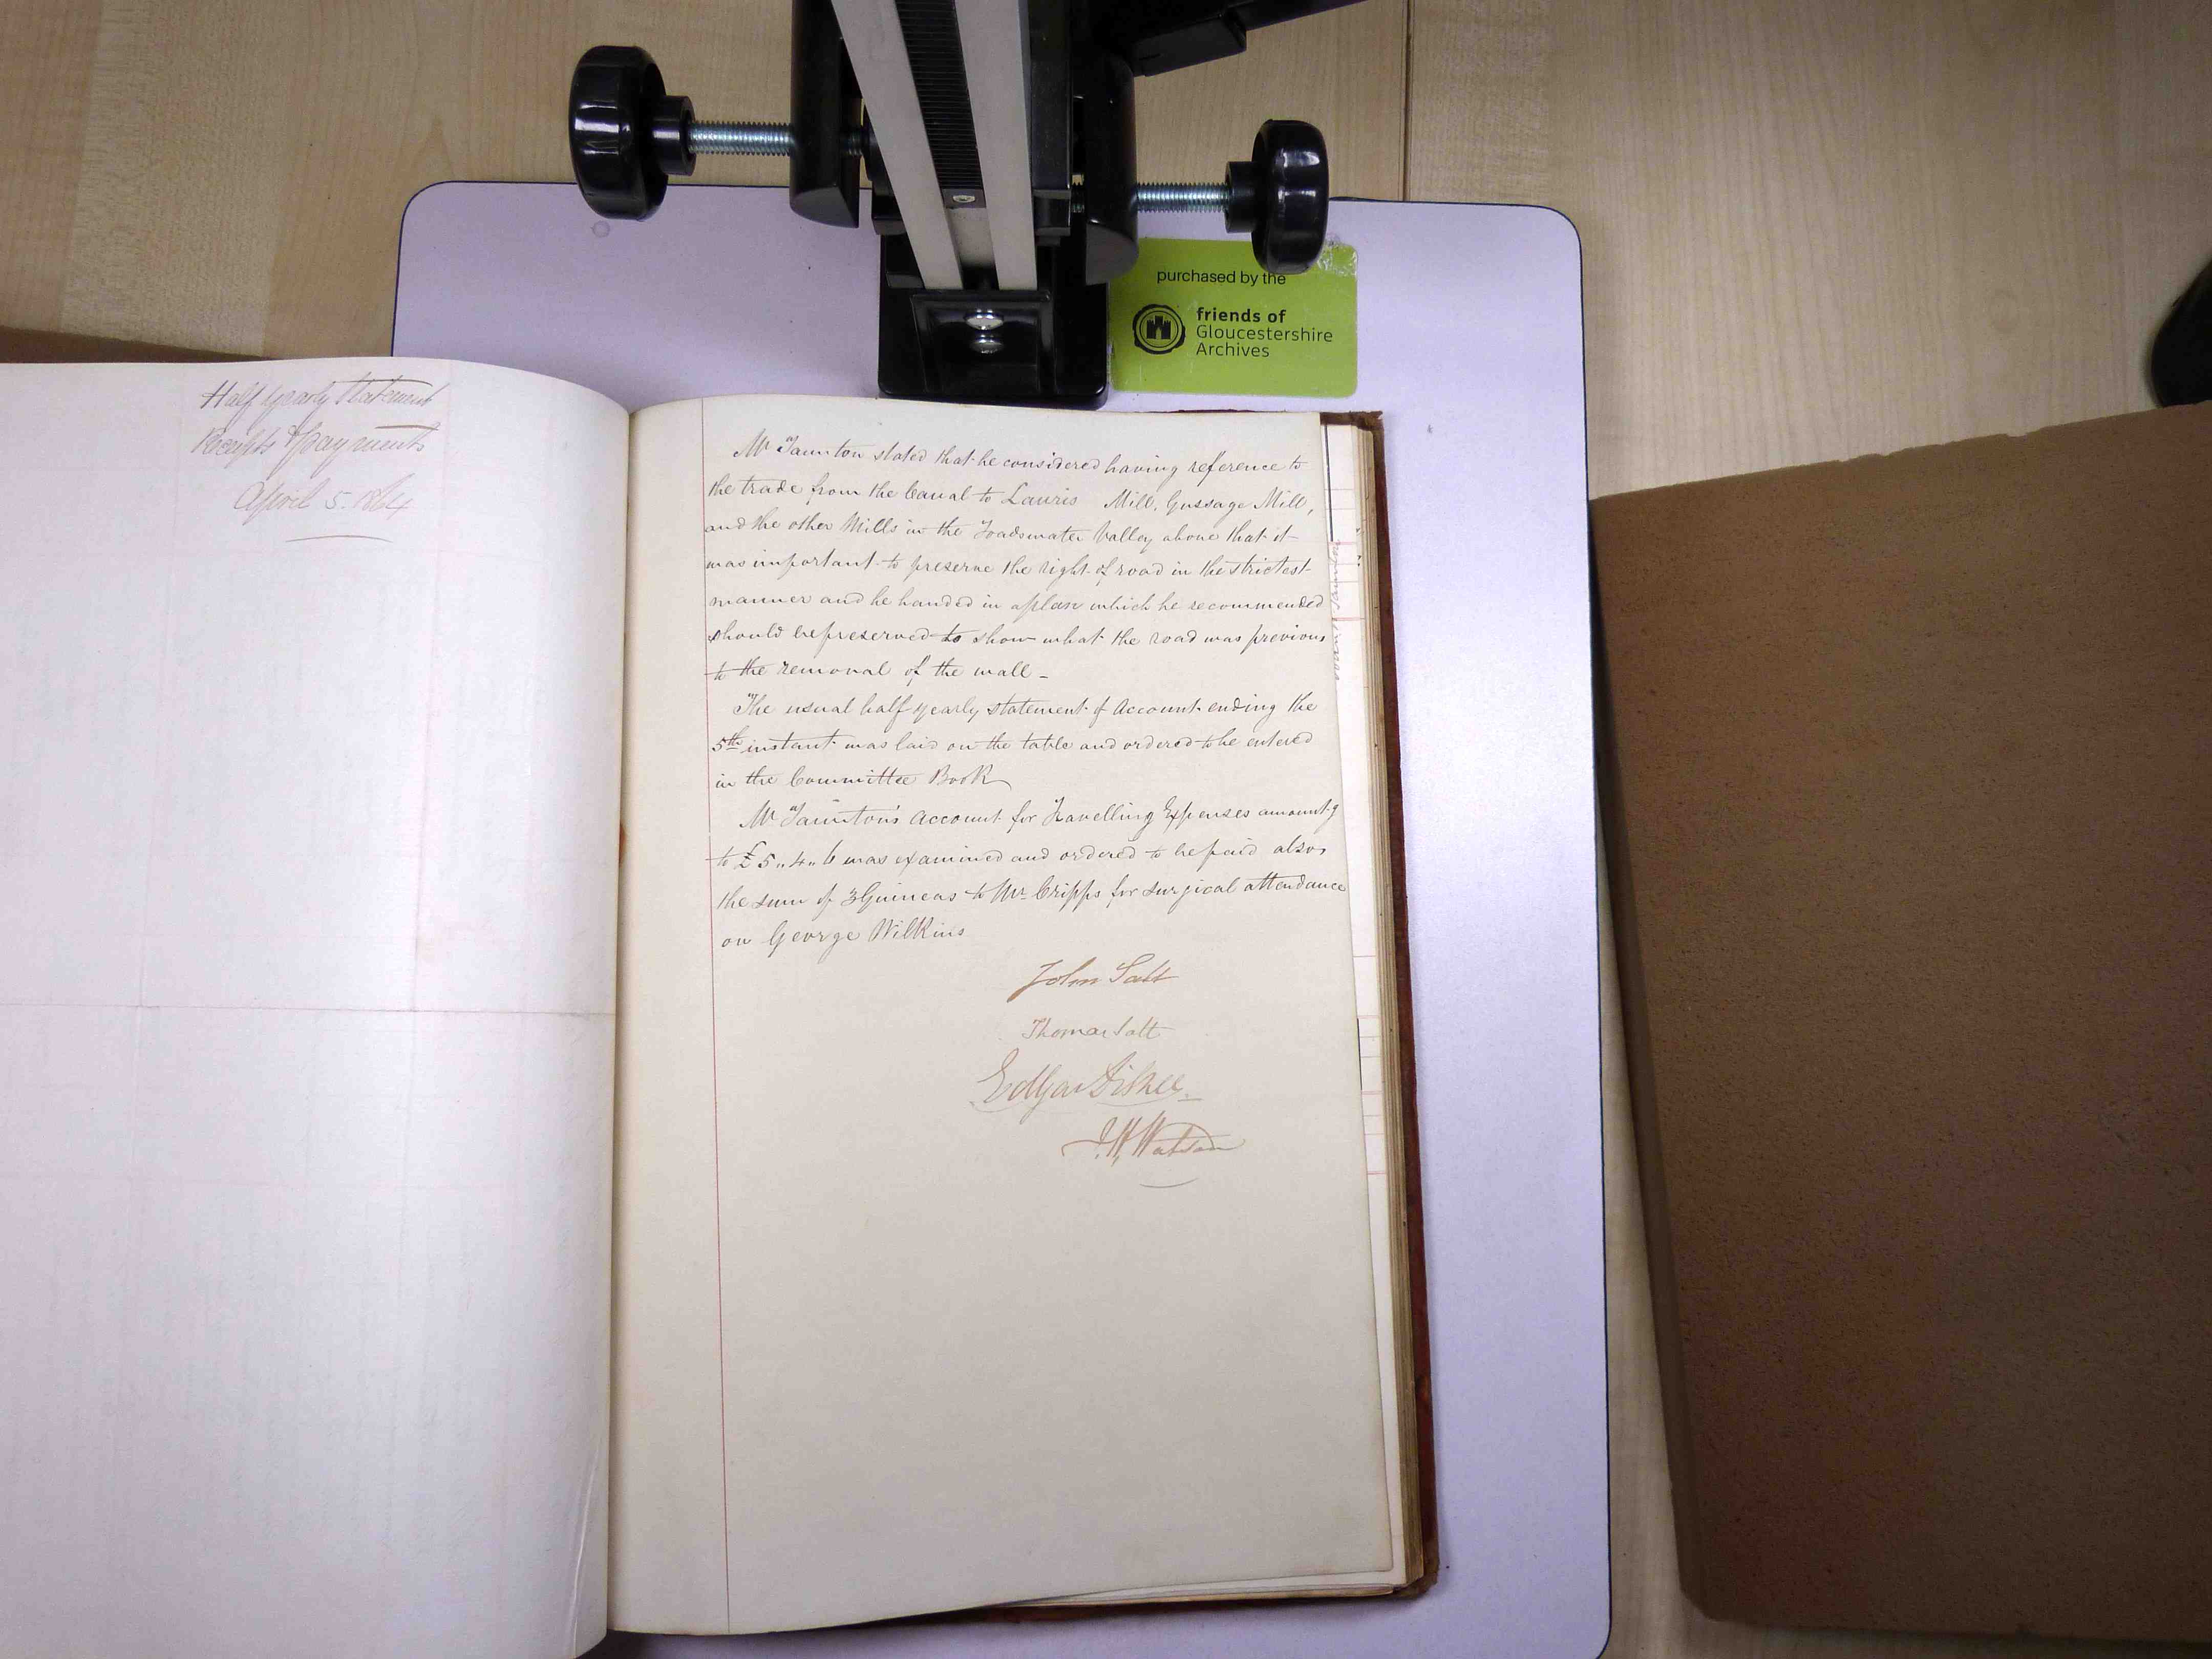 purchased by the
friends of
Gloucestershire
Archives
Half yearly Statement
Receipts & payments
April 5. 1864
Mr Taunton stated that he considered having reference to
the trade from the Canal to Lauris Mill, Gussage Mill,
and the other Mills in the Toadsmater Valley above that it
was important to preserve the right of road in the strictest
manner and he handed in a plan which he recommended
should be preserved to show what the road was previous
to the removal of the wall -
The usual half yearly statement of Account ending the
5th instant was laid on the table and ordered to be entered
in the Committee Book
Mr Taunton's Account for Travelling Expenses amountg
to £5..4..6 was examined and ordered to be paid also
the sum of 3 Guineas to Mr Cripps for surgical attendance
on George Wilkins
John Salt
Thomas Salt
Edgar
J. W. Watson